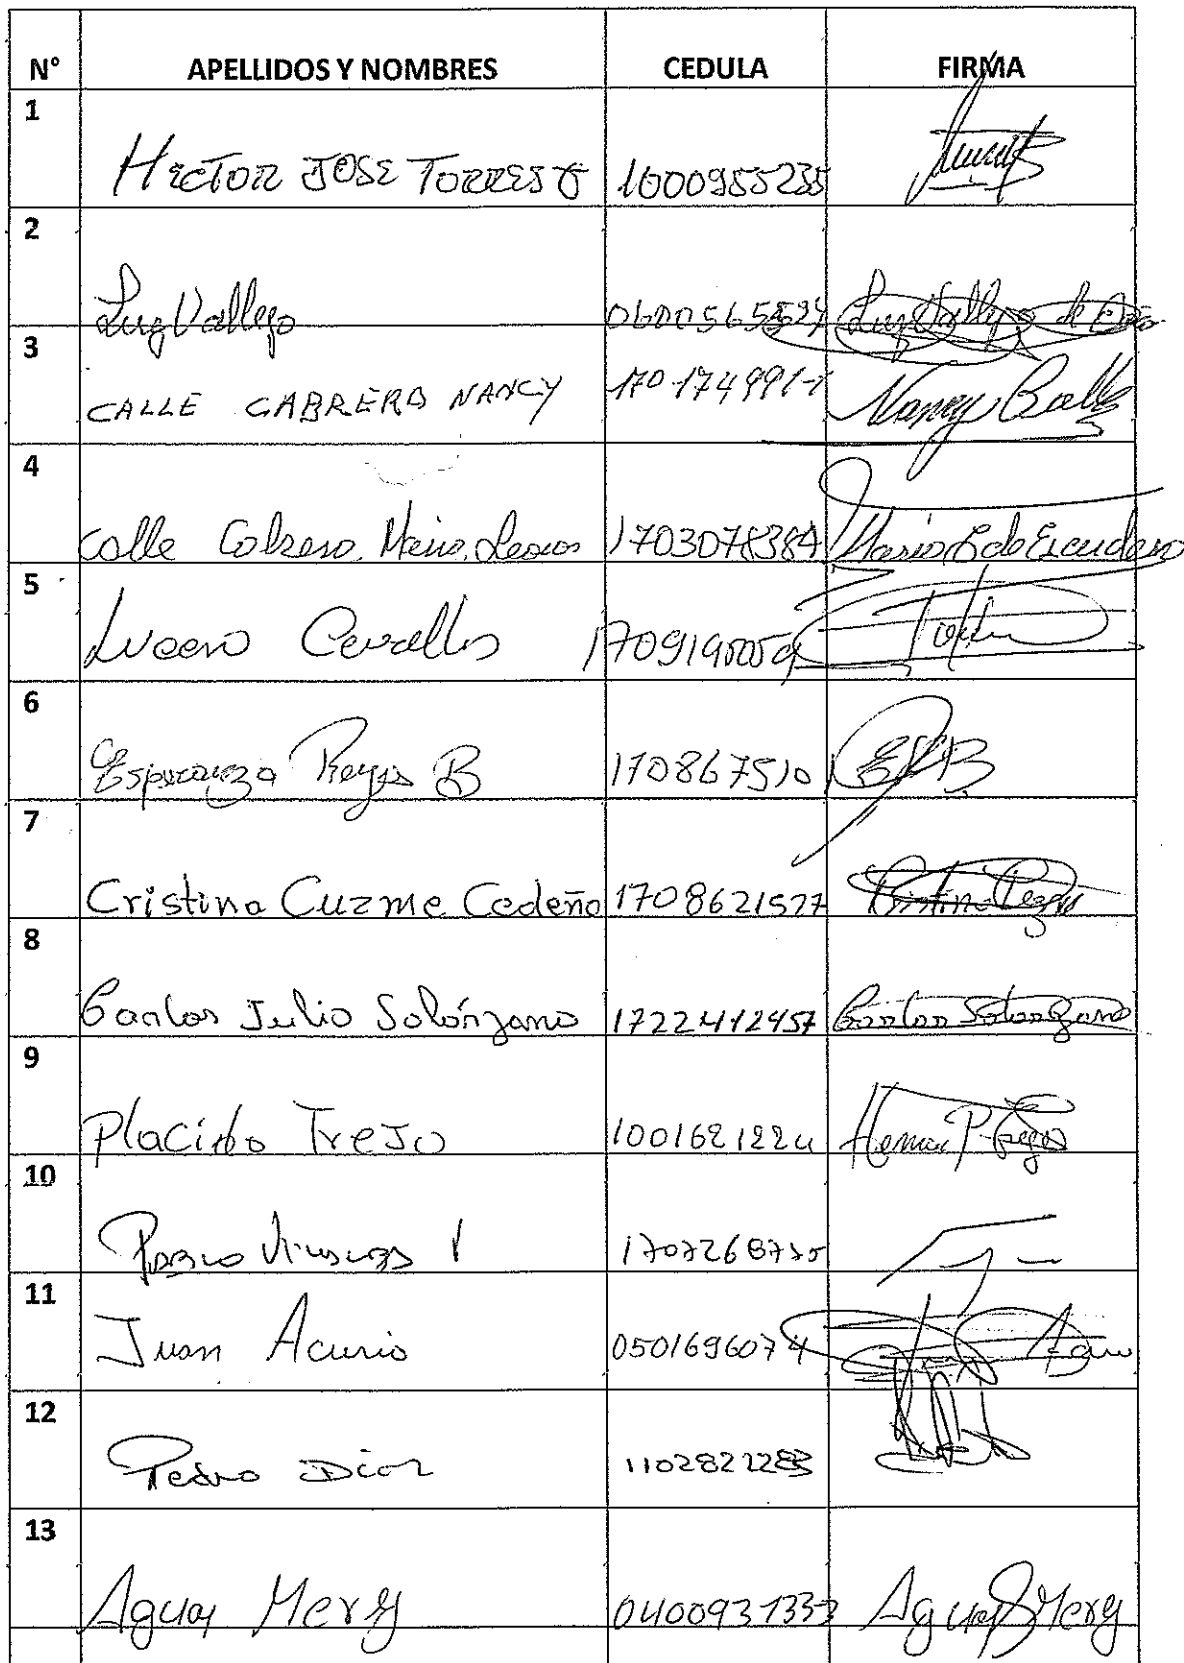 N° APELLIDOS Y NOMBRES CEDULA FIRMA
1
HECTOR JOSE TORRES 1000955235
2
Luz Vallejo Luz Vallejo de
3
CALLE CABRERA NANCY 170174991-1 Nancy Calle
4
Calle Cabrera 1703078384 Escudero
5
Lucero Cevallos
6
Esperanza Reyes B 170867510 ERB
7
Cristina Cuzme Cedeño 1708621577 Cristina
8
Carlos Julio Solórzano 1722412457 Carlos Solorzano
9
Placido Trejo 1001621224
10
11
Juan Acurio 0501696074
12
Pedro Diaz 1102822283
13
Aguay Mery 0400931333 Aguay Mery